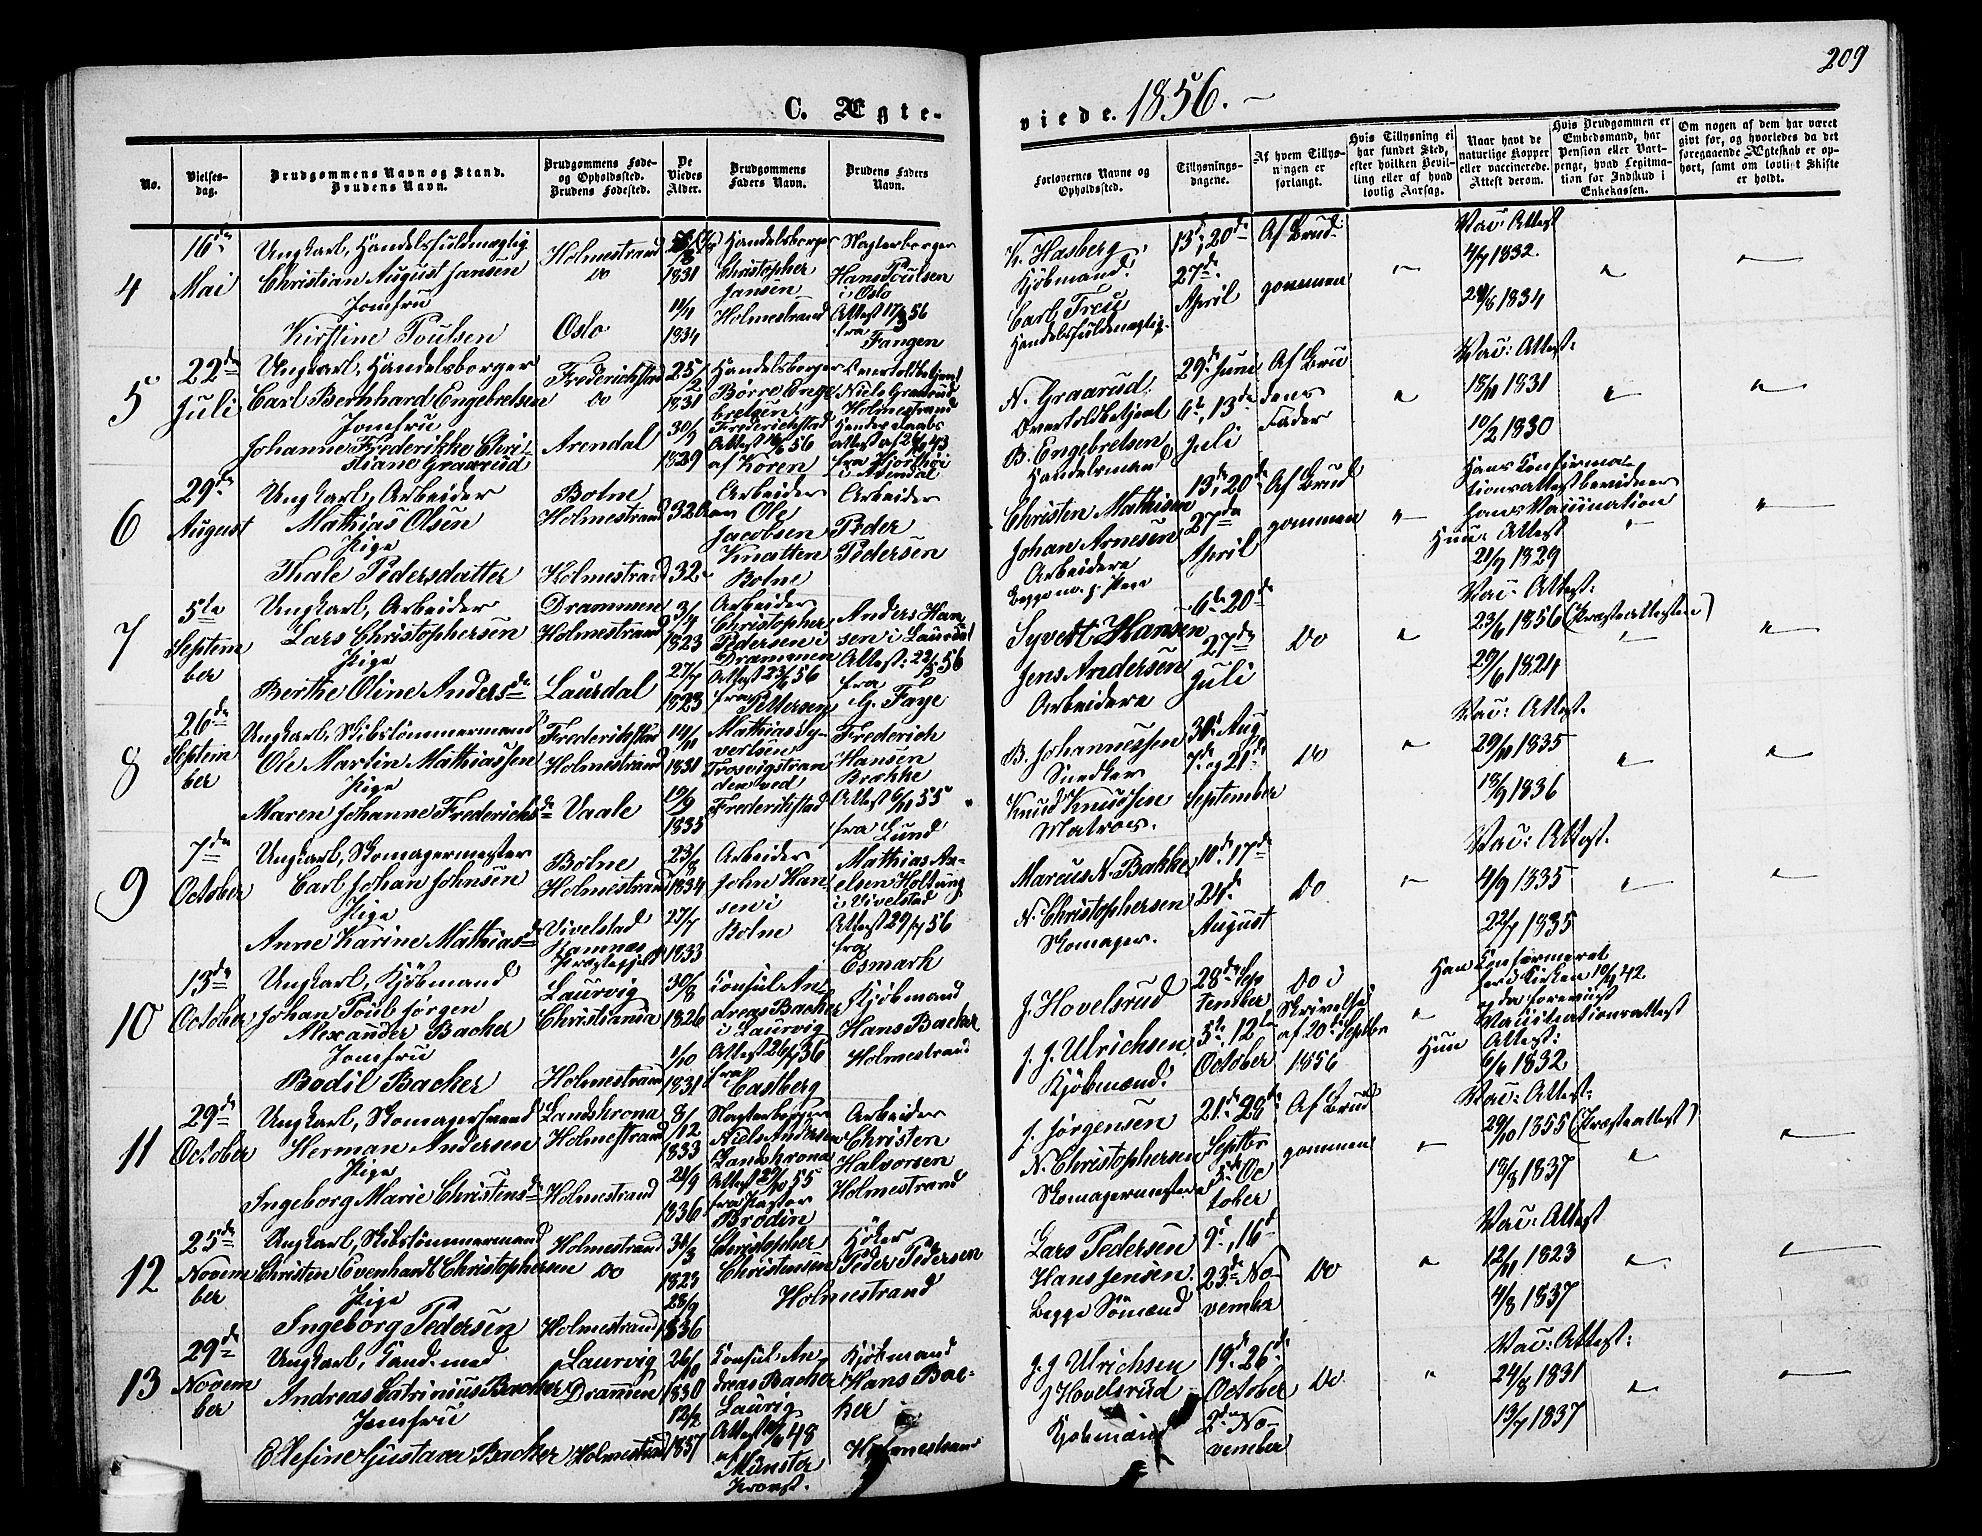 209
C. Ægte-
viede. 1856.
No.
Vielses-
dag.
Brudgommens Navn og Stand.
Brudens Navn.
Brudgommens Føde-
og Opholdssted.
Brudens Fødested.
De
Viedes
Alder.
Brudgommens
Faders Navn.
Brudens Faders
Navn.
Forlovernes Navne og
Opholdssted.
Tillysnings-
dagene.
Af hvem Tillys-
ningen er
forlangt.
Hvis Tillysning ei
har fundet Sted,
efter hvilken Bevil-
ling eller af hvad
lovlig Aarsag.
Naar havt de
naturlige Kopper
eller vaccinerede.
Attest derom.
Hvis Brudgommen er
Embedsmand, har
Pension eller Vart-
penge, hvad Legitima-
tion for Indskud i
Enkekassen.
Om nogen af dem har været
gift før, og hvorledes da det
foregaaende Ægteskab er op-
hørt, samt om lovligt Skifte
er holdt.
4
16de
Mai
Ungkarl, Handelsfuldmægtig
Christian August Jansen
Jomfru
Kirstine Poulsen
Holmestrand
do
Oslo
1831
11/4
1834
Handelsborger
Christopher
Jansen
Holmestrand
Slagterborger
Hans Poulsen
i Oslo
Attest 17/3 56
fra
Fangen
K. Hasberg,
Kjøbmand.
Carl Freu
Handelsfuldmægtig.
13de, 20de
27de
April
Af Brud-
gommen
Vac: Attest
4/7 1832.
1834
5
22de
Juli
Ungkarl, Handelsborger
Carl Bernhard Engebretsen
Jomfru
Johanne Frederikke Chri-
stiane Graarud
Frederichstad
do
Arendal
25/2
1831
30/9
1829
Handelsborger
Børre Enge
bretsen
Frederichstad
Attest 56
af Koren
Overtoldbetjent
Niels Graarud
Holmestrand
N. Graarud
Overtoldbetjent
B. Engebretsen
Handelsmand
29de Juni
6te, 13de
Juli
Af Bru
dens
Fader
Vac: Attest:
18/11 1831
10/2 1830
6
29de
August
Ungkarl, Arbeider
Mathias Olsen
Pige
Thale Pedersdatter
Botne
Holmestrand
Holmestrand
32 Aar
32
Arbeider
Ole
Jacobsen
Knatten
Botne
Arbeider
Peder
Pedersen
Christen Mathisen
Johan Arnesen
Arbeidere
13de, 20de
27de
April
Af Brud
gommen
Hans Confirma-
tionsattest bevidner
hans Vaccination
Hun: Attest
21/7 1829
7
5te
Septem
ber
Ungkarl, Arbeider
Lars Christophersen
Pige
Berthe Oline Andersdr
Drammen
Holmestrand
Laurdal
3/4
1823
27/7
1823
Arbeider
Christopher
Pedersen i
Drammen
Attest 23/6 56
fra
Pettersen
Anders Han
sen i Laurdal
Attest: 22/5 56
fra
G. Faye
Syvert Hansen
Jens Andersen
Arbeidere
6te 20de
27de
Juli
Do
Vac: Attest:
23/6 1856 (Præsteattesten)
29/6 1824
8
26de
Septem
ber
Ungkarl, Skibstømmermand
Ole Martin Mathiassen
Pige
Maren Johanne Frederichsdr
Frederichstad
Holmestrand
Vaale
14/11
1831
19/9
1835
Mathias Sy-
vertsen
Trosvigstran
den ved
Frederikstad
Frederich
Hansen
Brække
Attest 6/11 55
fra Lund
B. Johannessen
Snedker
Knud Knudsen
Matros.
30te Aug
7de og 21de
September
Do
Vac: Attest.
29/10 1835
13/9 1836
9
7de
October
Ungkarl, Skomagermester
Carl Johan Johnsen
Pige
Anne Karine Mathiasdr
Botne
Holmestrand
Vivelstad
Ramnes
Præstegjeld
23/8
1834
27/7
1833
Arbeider
John Han
sen i
Botne
Mathias An-
elsen Holtung
i Vivelstad
Attest 29/7 56
fra
Esmark
Marcus N. Bakke
N. Christophersen
Skomager.
10de, 17de
24de
August
Do
Vac: Attest.
4/9 1835
22/7 1835
10
13de
October
Ungkarl, Kjøbmand
Johan Poul Jørgen
Alexander Backer
Jomfru
Bodil Backer
Laurvig
Christiania
Holmestrand
30/8
1826
1/10
1831
Consul An-
dreas Backer
i Laurvig
Attest 26/7 36
fra
Castberg
Kjøbmand
Hans Backer
Holmestrand
J. Hovelsrud
J. J. Ulrichsen
Kjøbmænd.
28de Sep
tember
5te, 12te
October
Do i
Skrivelse
af 20de Septbr
1856
Han Confirmeret
her i Kirken 10/9 42
og da foreviist
Vaccinationsattest
Hun Attest:
6/6 1832
11
29de
October
Ungkarl, Skomagersvend
Herman Andersen
Pige
Ingeborg Marie Christensdr
Landskrona
Holmestrand
Holmestrand
8/12
1833
24/9
1836
Slagterborger
Niels Andersen
Landskrona
Attest 29/10 55
fra Pastor
Brodin
Arbeider
Christen
Halvorsen
Holmestrand
J. Jørgensen
N. Christophersen
Skomagermestere
21de, 28de
Septbr
5te Oc
tober
Af Brud
gommen
Vac: Attest:
29/10 1855 (Præsteattest)
13/8 1837
12
25de
Novem
ber
Ungkarl, Skibstømmermand
Christen Evenhardt Christophersen
Pige
Ingeborg Pedersen
Holmestrand
do
Holmestrand
30/3
1823
28/9
1836
Christopher
Christensen
Holmestrand
Høker
Peder Pedersen
Lars Pedersen
Hans Jensen
Begge Sømænd
9de, 16de
23de No-
vember
Do
Vac: Attest
12/11 1823
4/8 1837
13
29de
Novem
ber
Ungkarl, Cand. med.
Andreas Catrinius Backer
Jomfru
Elefine Gustava Backer
Laurvig
Drammen
Holmestrand
26/10
1830
12/2
1837
Consul An-
dreas Backer
Laurvig
Attest 48
af
Münster
Provst.
Kjøbmand
Hans Bac-
ker
Holmestrand
J. J. Ulrichsen
J Hovelsrud
Kjøbmænd
19de, 26de
October
2den No-
vember
Do
Vac: Attest:
24/8 1831
13/7 1837